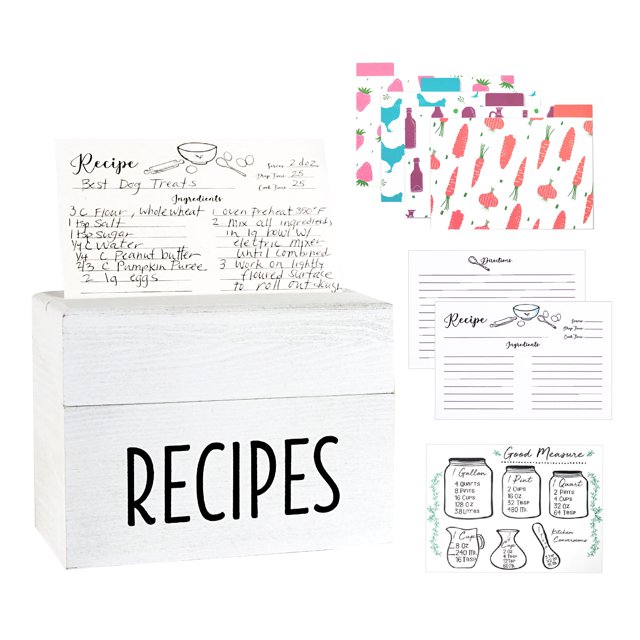 Recipe
Serves 2 doz
Prep Time 25
Cook Time 25
Best Dog Treats
Ingredients
3 C Flour, wholewheat
1 tsp Salt
1 tsp Sugar
1/4 C Water
1/4 C Peanut butter
2/3 C Pumpkin Puree
2 lg eggs
1 oven Preheat 350°F
2 Mix all ingredients
in lg bowl w/
electric mixer
until combined
3 Work on lightly
floured surface
to roll out
RECIPES
Directions
Recipe
Serves
Prep Time
Cook Time
Ingredients
Good Measure
1 Gallon
4 Quarts
8 Pints
16 Cups
128 Oz
3.8 Litres
1 Pint
2 Cups
16 Oz
32 Tbsp
480 ML
1 Quart
2 Pints
4 Cups
32 Oz
64 Tbsp
1 Cup
8 Oz
240 ML
16 Tbsp
Kitchen
Conversions